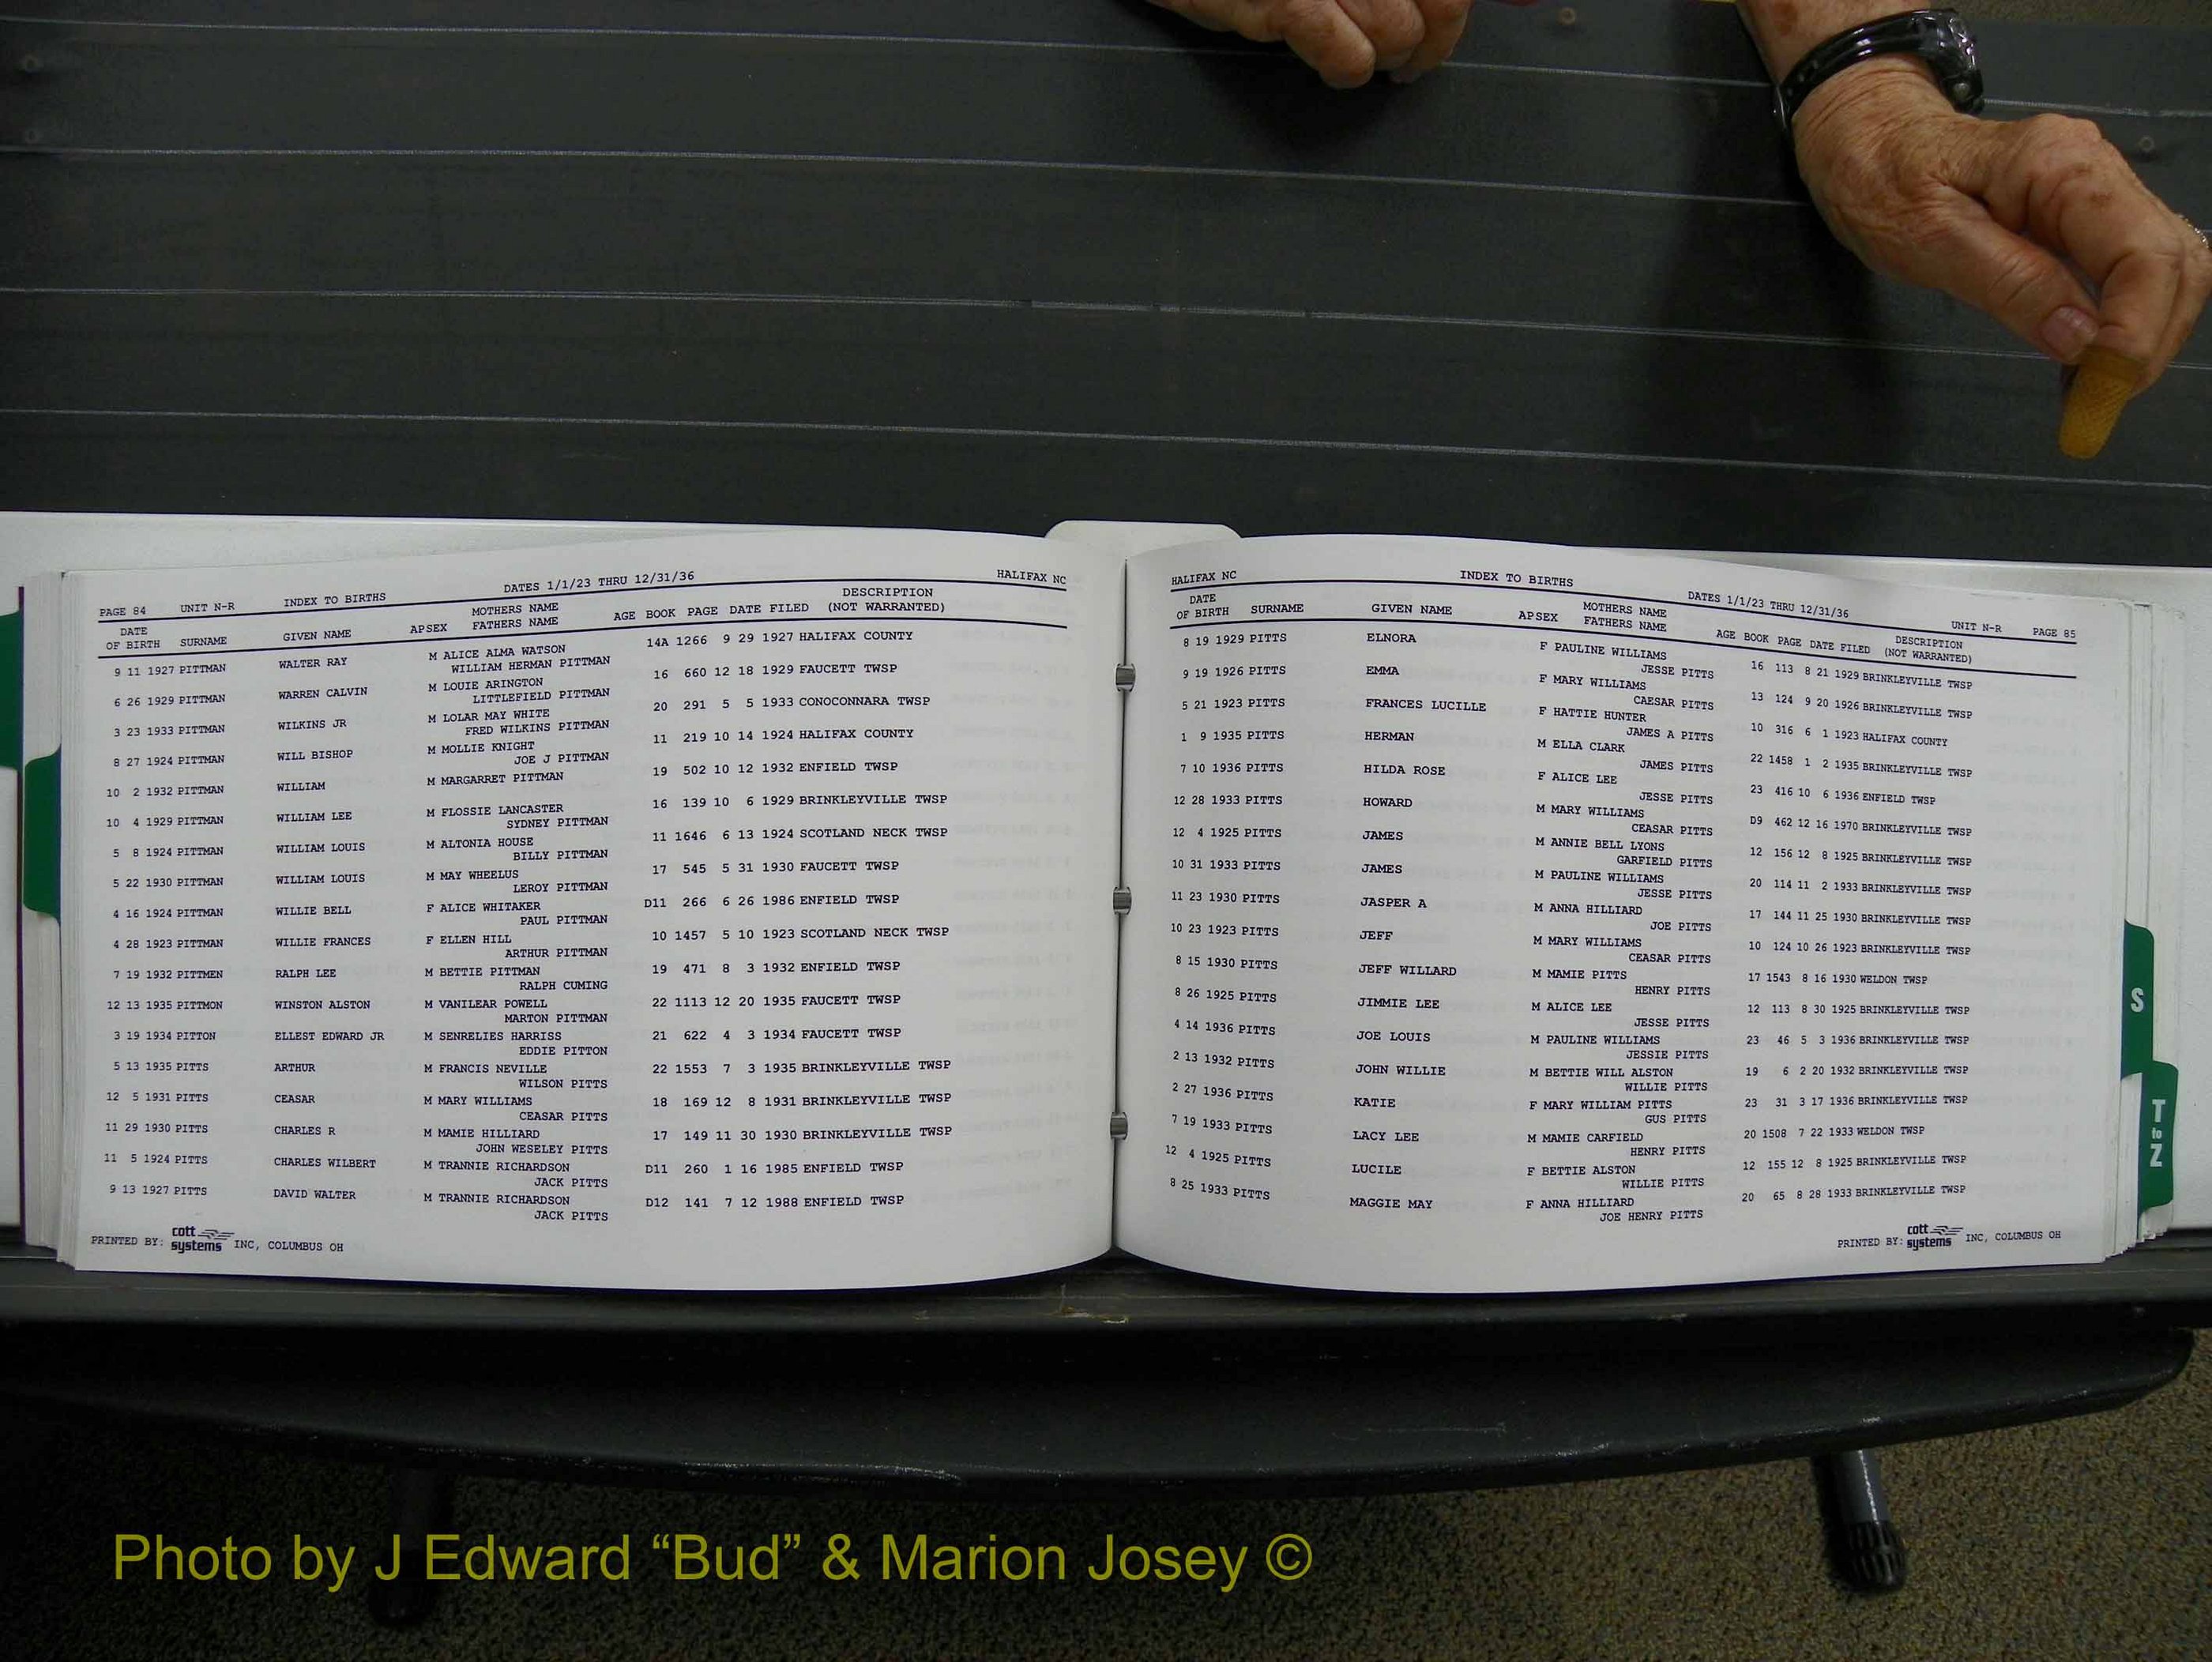 PAGE 84 UNIT N-R INDEX TO BIRTHS DATES 1/1/23 THRU 12/31/36 HALIFAX NC
DATE OF BIRTH SURNAME GIVEN NAME APSEX MOTHERS NAME FATHERS NAME AGE BOOK PAGE DATE FILED DESCRIPTION (NOT WARRANTED)
9 11 1927 PITTMAN WALTER RAY M ALICE ALMA WATSON 14A 1266 9 29 1927 HALIFAX COUNTY
WILLIAM HERMAN PITTMAN
6 26 1929 PITTMAN WARREN CALVIN M LOUIE ARINGTON 16 660 12 18 1929 FAUCETT TWSP
LITTLEFIELD PITTMAN
3 23 1933 PITTMAN WILKINS JR M LOLAR MAY WHITE 20 291 5 5 1933 CONOCONNARA TWSP
FRED WILKINS PITTMAN
8 27 1924 PITTMAN WILL BISHOP M MOLLIE KNIGHT 11 219 10 14 1924 HALIFAX COUNTY
JOE J PITTMAN
10 2 1932 PITTMAN WILLIAM M MARGARRET PITTMAN 19 502 10 12 1932 ENFIELD TWSP
10 4 1929 PITTMAN WILLIAM LEE M FLOSSIE LANCASTER 16 139 10 6 1929 BRINKLEYVILLE TWSP
SYDNEY PITTMAN
5 8 1924 PITTMAN WILLIAM LOUIS M ALTONIA HOUSE 11 1646 6 13 1924 SCOTLAND NECK TWSP
BILLY PITTMAN
5 22 1930 PITTMAN WILLIAM LOUIS M MAY WHEELUS 17 545 5 31 1930 FAUCETT TWSP
LEROY PITTMAN
4 16 1924 PITTMAN WILLIE BELL F ALICE WHITAKER D11 266 6 26 1986 ENFIELD TWSP
PAUL PITTMAN
4 28 1923 PITTMAN WILLIE FRANCES F ELLEN HILL 10 1457 5 10 1923 SCOTLAND NECK TWSP
ARTHUR PITTMAN
7 19 1932 PITTMEN RALPH LEE M BETTIE PITTMAN 19 471 8 3 1932 ENFIELD TWSP
RALPH CUMING
12 13 1935 PITTMON WINSTON ALSTON M VANILEAR POWELL 22 1113 12 20 1935 FAUCETT TWSP
MARTON PITTMAN
3 19 1934 PITTON ELLEST EDWARD JR M SENRELIES HARRISS 21 622 4 3 1934 FAUCETT TWSP
EDDIE PITTON
5 13 1935 PITTS ARTHUR M FRANCIS NEVILLE 22 1553 7 3 1935 BRINKLEYVILLE TWSP
WILSON PITTS
12 5 1931 PITTS CEASAR M MARY WILLIAMS 18 169 12 8 1931 BRINKLEYVILLE TWSP
CEASAR PITTS
11 29 1930 PITTS CHARLES R M MAMIE HILLIARD 17 149 11 30 1930 BRINKLEYVILLE TWSP
JOHN WESELEY PITTS
11 5 1924 PITTS CHARLES WILBERT M TRANNIE RICHARDSON D11 260 1 16 1985 ENFIELD TWSP
JACK PITTS
9 13 1927 PITTS DAVID WALTER M TRANNIE RICHARDSON D12 141 7 12 1988 ENFIELD TWSP
JACK PITTS
PRINTED BY: cott systems INC, COLUMBUS OH
HALIFAX NC INDEX TO BIRTHS DATES 1/1/23 THRU 12/31/36 UNIT N-R PAGE 85
DATE OF BIRTH SURNAME GIVEN NAME APSEX MOTHERS NAME FATHERS NAME AGE BOOK PAGE DATE FILED DESCRIPTION (NOT WARRANTED)
8 19 1929 PITTS ELNORA F PAULINE WILLIAMS 16 113 8 21 1929 BRINKLEYVILLE TWSP
JESSE PITTS
9 19 1926 PITTS EMMA F MARY WILLIAMS 13 124 9 20 1926 BRINKLEYVILLE TWSP
CAESAR PITTS
5 21 1923 PITTS FRANCES LUCILLE F HATTIE HUNTER 10 316 6 1 1923 HALIFAX COUNTY
JAMES A PITTS
1 9 1935 PITTS HERMAN M ELLA CLARK 22 1458 1 2 1935 BRINKLEYVILLE TWSP
JAMES PITTS
7 10 1936 PITTS HILDA ROSE F ALICE LEE 23 416 10 6 1936 ENFIELD TWSP
JESSE PITTS
12 28 1933 PITTS HOWARD M MARY WILLIAMS D9 462 12 16 1970 BRINKLEYVILLE TWSP
CEASAR PITTS
12 4 1925 PITTS JAMES M ANNIE BELL LYONS 12 156 12 8 1925 BRINKLEYVILLE TWSP
GARFIELD PITTS
10 31 1933 PITTS JAMES M PAULINE WILLIAMS 20 114 11 2 1933 BRINKLEYVILLE TWSP
JESSE PITTS
11 23 1930 PITTS JASPER A M ANNA HILLIARD 17 144 11 25 1930 BRINKLEYVILLE TWSP
JOE PITTS
10 23 1923 PITTS JEFF M MARY WILLIAMS 10 124 10 26 1923 BRINKLEYVILLE TWSP
CEASAR PITTS
8 15 1930 PITTS JEFF WILLARD M MAMIE PITTS 17 1543 8 16 1930 WELDON TWSP
HENRY PITTS
8 26 1925 PITTS JIMMIE LEE M ALICE LEE 12 113 8 30 1925 BRINKLEYVILLE TWSP
JESSE PITTS
4 14 1936 PITTS JOE LOUIS M PAULINE WILLIAMS 23 46 5 3 1936 BRINKLEYVILLE TWSP
JESSIE PITTS
2 13 1932 PITTS JOHN WILLIE M BETTIE WILL ALSTON 19 6 2 20 1932 BRINKLEYVILLE TWSP
WILLIE PITTS
2 27 1936 PITTS KATIE F MARY WILLIAM PITTS 23 31 3 17 1936 BRINKLEYVILLE TWSP
GUS PITTS
7 19 1933 PITTS LACY LEE M MAMIE CARFIELD 20 1508 7 22 1933 WELDON TWSP
HENRY PITTS
12 4 1925 PITTS LUCILE F BETTIE ALSTON 12 155 12 8 1925 BRINKLEYVILLE TWSP
WILLIE PITTS
8 25 1933 PITTS MAGGIE MAY F ANNA HILLIARD 20 65 8 28 1933 BRINKLEYVILLE TWSP
JOE HENRY PITTS
PRINTED BY: cott systems INC, COLUMBUS OH
S
T to Z
Photo by J Edward “Bud” & Marion Josey ©